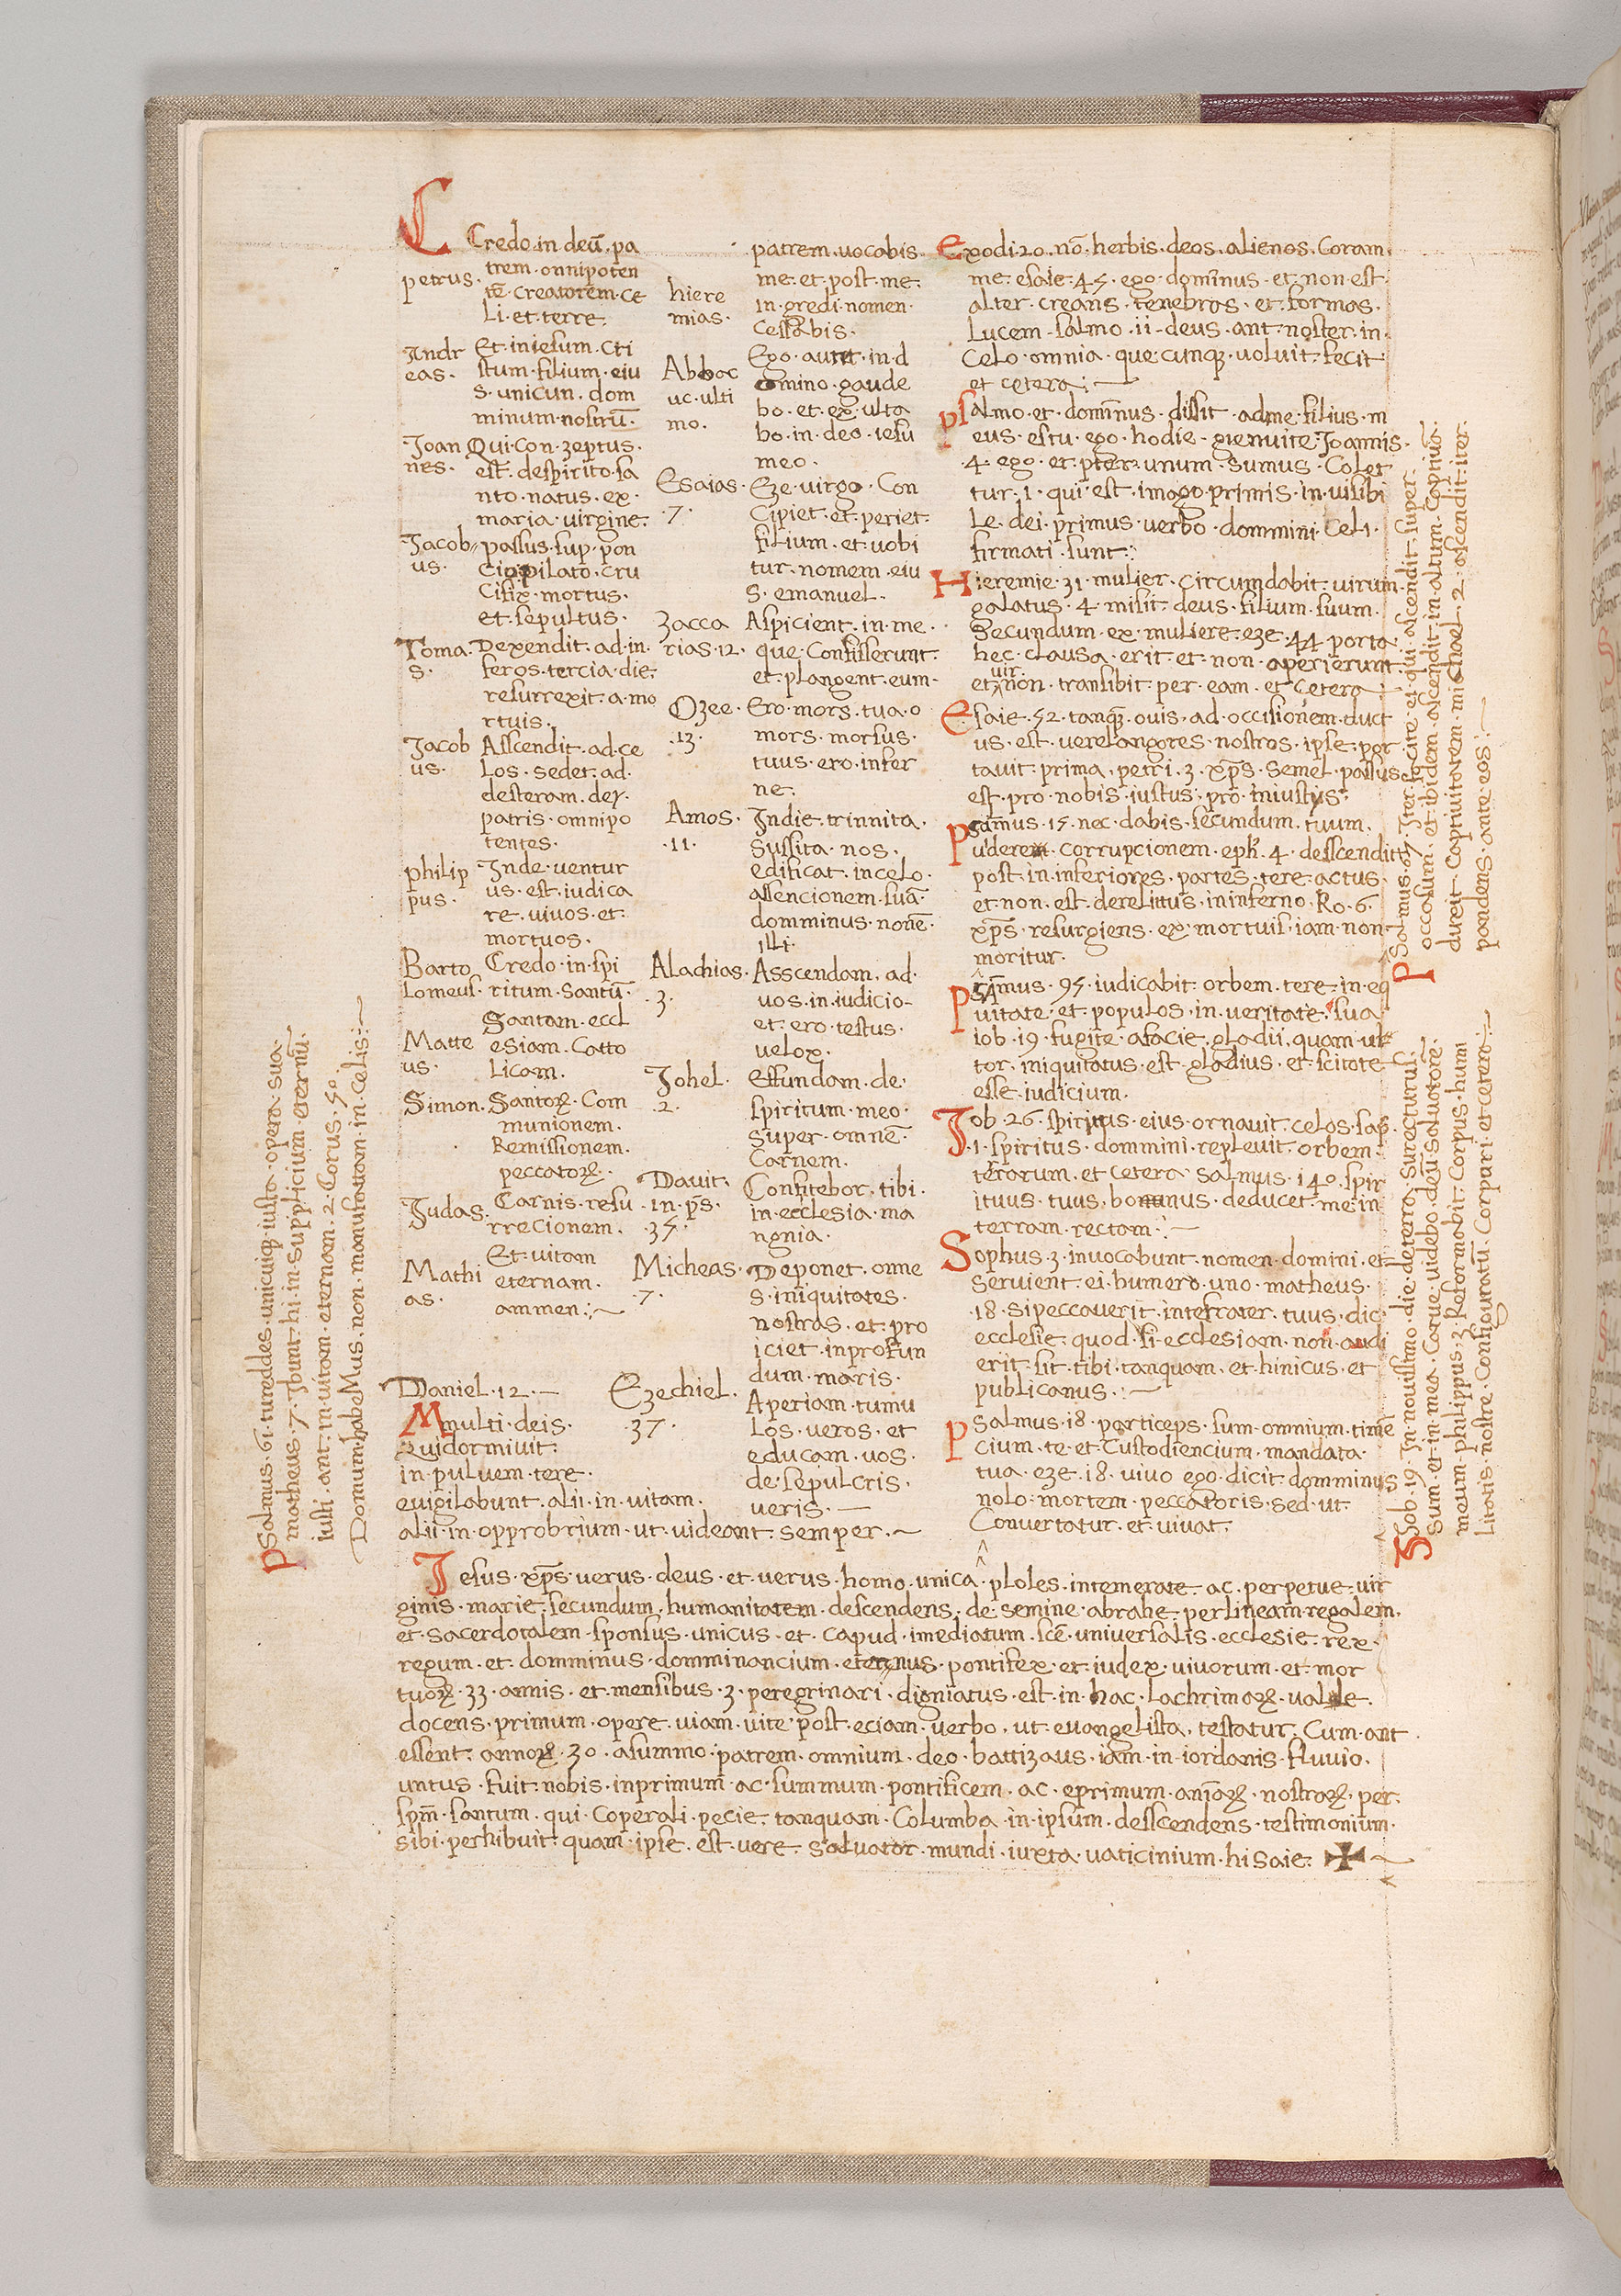 Credo·in deū·pa
petrus·
trem·onnipoten
tē·creatorem·ce
li·et·terre·
Andr
eas·
Et·iniesum·cri
stum·filium·eiu
s·unicun·dom
minum·nostrū·
Joan
nes·
Qui·con·zeptus·
est·despirito·sa
nto·natus·ex·
maria·uirgine·
Jacob
us·
passus·sup·pon
cio pilato·cru
cifix·mortus·
et·sepultus·
Toma
s·
Dexendit·ad·in·
feros·tercia·die·
resurrexit·a·mo
rtuis·
Jacob
us·
Asscendit·ad·ce
los·sedet·ad·
desteram·dei·
patris·omnipo
tentes·
philip
pus·
Inde·uentur
us·est·iudica
re·uiuos·et·
mortuos·
Barto
lomeus·
Credo·in·spi
ritum·santū·
Santam·eccl
Matte
us·
esiam·catto
licam·
Simon·
Santoꝝ·com
munionem·
Remissionem·
peccatoꝝ·
Judas·
Carnis·resu
rrecionem·
Mathi
as·
Et·uitam
eternam·
ammen:~
hiere
mias·
patrem·uocabis·
me·et·post·me·
in·gredi·nomen·
cessabis·
Abbac
uc·ulti
mo·
Ego·aute·in·d
omino·gaude
bo·et·ex·ulta
bo·in·deo·iesu
meo·
Esaias·
·7·
Eze·uirgo·con
cipiet·et·periet·
filium·et·uobi
tur·nomem·eiu
s·emanuel·
Zacca
rias·12·
Aspicient·in·me·
que·confisserunt·
et·plangent·eum·
Ozee·
·13·
Ero·mors·tua·o
mors·morsus·
tuus·ero·infer
ne·
Amos·
·11·
Indie·trinnita·
sussita·nos·
edificat·incelo·
assencionem·suā·
domminus·nonē·
illi·
Alachias·
·3·
Asscendam·ad·
uos·in·iudicio-
et·ero·testus·
uelox·
Johel·
·2·
Effundam·de·
spiritum·meo·
super·omnē·
carnem·
Dauit·
·in·ps·
·35·
Confitebor·tibi·
in·ecclesia·ma
ngnia·
Micheas·
·7·
Deponet·onne
s·iniquitates·
nostras·et·pro
iciet·inprofun
dum·maris·
Ezechiel·
·37·
Aperiam·tumu
los·ueros·et
educam·uos·
de·sepulcris·
ueris·—
Daniel·12·—
Mmulti·deis·
Quidormiuit·
in·puluem·tere·
euigilabunt·alii·in·uitam·
alii·in·opprobrium·ut·uideant·semper·~
Exodi·20·nō·herbis·deos·alienos·coram·
me·esaie·45·ego·dominus·et·non·est·
alter·creans·tenebras·et·formas·
lucem·salmo·ii·deus·ant·noster·in·
celo·omnia·que·cunqꝫ·uoluit·fecit·
et cetera:—
psalmo·et·dominus·dissit·adme·filius·m
eus·estu·ego·hodie·gienuite·Joannis·
·4·ego·et·pter·unum·sumus·Colet
tur·1·qui·est·imago·primis·in·uisibi
le·dei·primus·uerbo·dommini·celi·
firmati·sunt:
Hieremie·31·mulier·circumdabit·uirum·
galatus·4·misit·deus·filium·suum·
Secundum·ex·muliere·eze·44·porta·
hec·clausa·erit·et·non·aperierunt·
uir·
et·non·transibit·per·eam·et·cetera—
Esaie·52·tanqꝫ·ouis·ad·occisionem·duct
us·est·uerelangores·nostros·ipse·por
tauit·prima·petri·3·xp̄s·semel·passus
est·pro·nobis·iustus·pro·iniustus·
psamus·15·nec·dabis·secundum·tuum·
uidere·corrupcionem·eph·4·desscendit
post·in·inferiores·partes·tere·actus·
et·non·est·derelittus·ininferno·Ro·6·
xp̄s·resurgiens·ex·mortuis·iam·non·
moritur·
psamus·95·iudicabit·orbem·tere·in·eq
uitate·et·populos·in·ueritate·sua
iob·19·fugite·afacie·gladii·quam·ul
tor·iniquitatus·est·gladius·et·scitote
esse·iudicium·
Job·26·spiritus·eius·ornauit·celos·sap·
·1·spiritus·dommini·repleuit·orbem·
terarum·et·cetera·salmus·140·spir
ituus·tuus·bonus·deducet·me·in·
terram·rectam:—
Sophus·3·inuocabunt·nomen·domini·et
seruient·ei·humero·uno·matheus·
·18·sipeccauerit·interfrater·tuus·dic·
ecclesie·quod·si·ecclesiam·non·audi
erit·sit·tibi·tanquam·et·hinicus·et
publicanus·:—
psalmus·18·particeps·sum·omnium·time
cium·te·et·custodiencium·mandata·
tua·eze·18·uiuo·ego·dicit·domminus
nolo·mortem·peccatoris·sed·ut·
conuertatur·et·uiuat·
Iesus·xp̄s·uerus·deus·et·uerus·homo·unica·ploles·intemerate·ac·perpetue·uir
ginis·marie·secundum·humanitatem·descendens·de·semine·abrahe·perlineam·regalem·
et·sacerdotalem·sponsus·unicus·et·capud·imediatum·scē·uniuersalis·ecclesie·rex·
regum·et·domminus·domminancium·eternus·pontifex·et·iudex·uiuorum·et·mor
tuoꝝ·33·annis·et·mensibus·3·peregrinari·digniatus·est·in·hac·lachrimaꝝ·ualle·
docens·primum·opere·uiam·uite·post·eciam·uerbo·ut·euangelista·testatur·Cum·ant·
essent·annoꝝ·30·asummo·patrem·omnium·deo·battizaus·iam·in·iordanis·fluuio·
untus·fuit·nobis·inprimum·ac·summum·pontificem·ac·eprimum·aniāꝝ·nostraꝝ·per·
spm̄·santum·qui·coperali·pecie·tanquam·columba·in·ipsum·desscendens·testimonium·
sibi·perhibuit·quam·ipse·est·uere·saluator·mundi·iuxta·uaticinium·hisaie· ✠~
psalmus·61·tureddes·unicuiqꝫ·iusto·opera·sua·
matheus·7·Ibunt·hi·in·supplicium·eternū·
iusti·ant·in·uitam·eternam·2·corus·5°·
Domum·habeMus·non·manufattam·in·celis:~
psalmus·67·Iter·facite·ei·qui·ascendit·super·
occasum·et·ibidem·ascendit·in·altum·captiua·
dureit·captiuitatem·michael·2·ascendit·iter·
pondens·ante·eos:—
Job·19·In·nouissimo·die·deterra·surecturus·
sum·et·in·mea·carne·uidebo·deū·saluatore·
meum·philippus·3·Reformabit·corpus·humi
litatis·nostre·configuratū·corpari·et·cetera:~